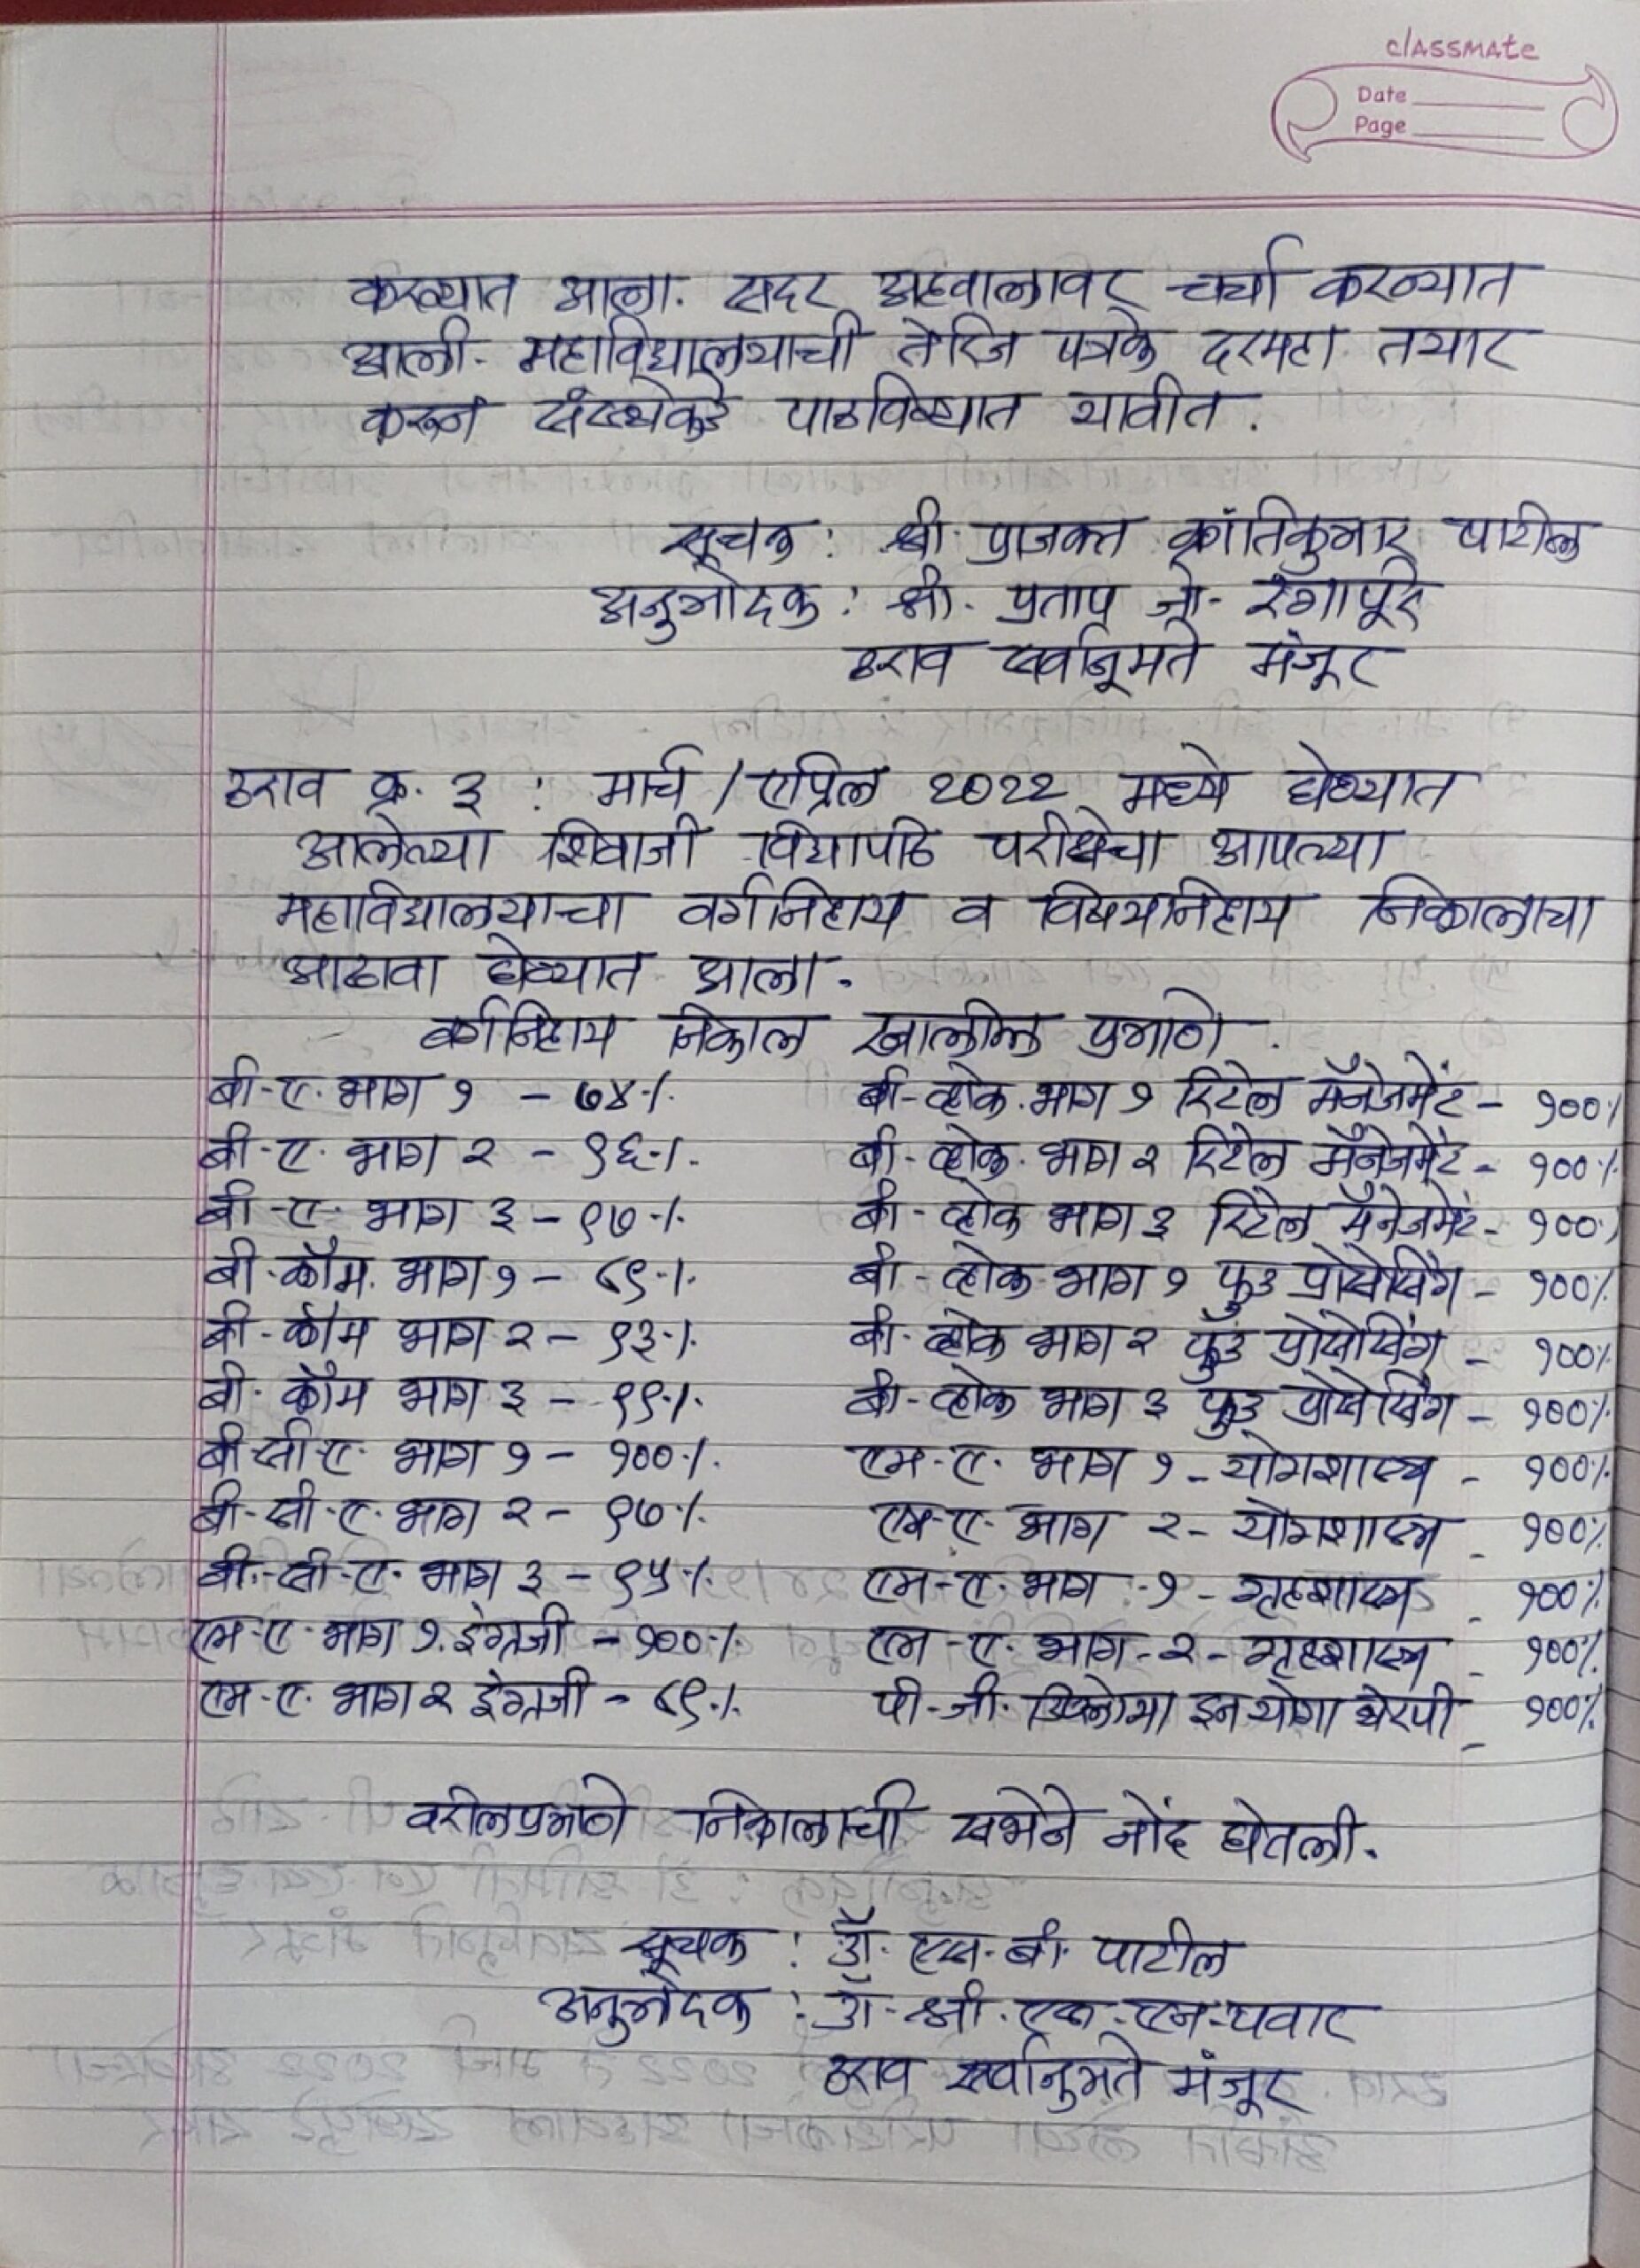 classmate
Date
Page
करण्यात आला. सदर अहवालावर चर्चा करण्यात
आली. महाविद्यालयाची तेरिज पत्रके दरमहा तयार
करून संस्थेकडे पाठविण्यात यावीत.
सूचक : श्री. प्राजक्त क्रांतिकुमार पाटील
अनुमोदक : श्री. प्रताप जो. रुगापूरे
ठराव सर्वानूमते मंजूर
ठराव क्र. ३ : मार्च / एप्रिल 2022 मध्ये घेण्यात
आलेल्या शिवाजी विद्यापीठ परीक्षेचा आपल्या
महाविद्यालयाचा वर्गनिहाय व विषयनिहाय निकालाचा
आढावा घेण्यात आला.
वर्गनिहाय निकाल खालील प्रमाणे.
बी.ए. भाग १ - ७४% बी-व्होक. भाग १ रिटेल मॅनेजमेंट - १००%
बी.ए. भाग २ - ९६% बी-व्होक. भाग २ रिटेल मॅनेजमेंट - १००%
बी.ए. भाग ३ - ९७% बी-व्होक भाग ३ रिटेल मॅनेजमेंट - १००%
बी.कॉम. भाग १ - ८९% बी-व्होक भाग १ फुड प्रोसेसिंग - १००%
बी.कॉम भाग २ - ९३% बी-व्होक भाग २ फुड प्रोसेसिंग - १००%
बी.कॉम भाग ३ - ९९% बी-व्होक भाग ३ फुड प्रोसेसिंग - १००%
बी.सी.ए. भाग १ - १००% एम.ए. भाग १ - योगशास्त्र - १००%
बी.सी.ए. भाग २ - ९७% एम.ए. भाग २ - योगशास्त्र - १००%
बी.सी.ए. भाग ३ - ९५% एम.ए. भाग - १ - गृहशास्त्र - १००%
एम.ए. भाग १. इंग्रजी - १००% एम.ए. भाग - २ - गृहशास्त्र - १००%
एम.ए. भाग २ इंग्रजी - ८९% पी.जी. डिप्लोमा इन योगा थेरपी - १००%
वरीलप्रमाणे निकालाची सभेने नोंद घेतली.
सूचक : डॉ. एस. बी. पाटील
अनुमोदक : डॉ. श्री. एस. एन. पवार
ठराव सर्वानुमते मंजूर